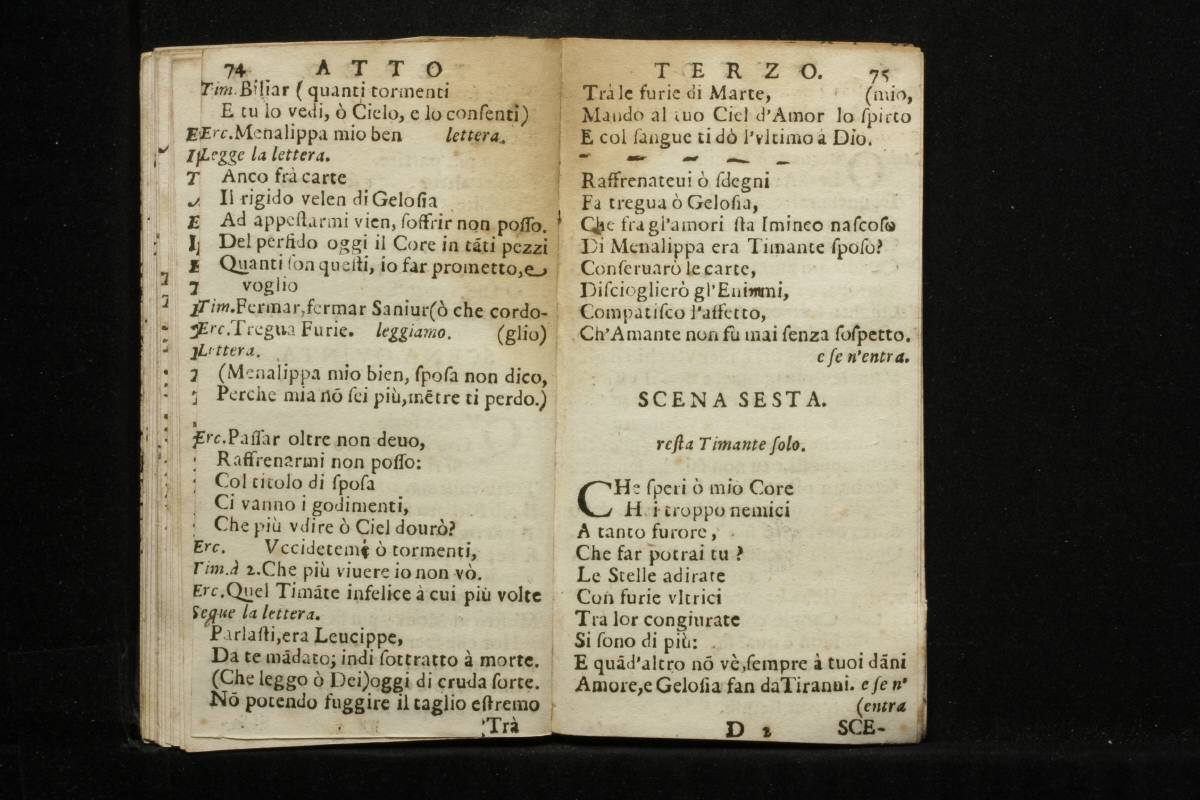 74 ATTO
Tim. Biſiar ( quanti tormenti
E tu lo vedi, ò Cielo, e lo conſenti)
Erc. Menalippa mio ben lettera.
Legge la lettera.
Anco frà carte
Il rigido velen di Geloſia
Ad appeſtarmi vien, ſoffrir non poſſo.
Del perfido oggi il Core in tãti pezzi
Quanti ſon queſti, io far prometto, e
voglio
Tim. Fermar, fermar Saniur (ò che cordo-
Erc. Tregua Furie. leggiamo. (glio)
Lettera.
(Menalippa mio bien, ſpoſa non dico,
Perche mia nõ ſei più, mẽtre ti perdo.)
Erc. Paſſar oltre non deuo,
Raffrenarmi non poſſo:
Col titolo di ſpoſa
Ci vanno i godimenti,
Che più vdire ò Ciel dourò?
Erc. Vccidetemi ò tormenti,
Tim. à 2. Che più viuere io non vò.
Erc. Quel Timãte infelice à cui più volte
Segue la lettera.
Parlaſti, era Leucippe,
Da te mãdato; indi ſottratto à morte.
(Che leggo ò Dei) oggi di cruda ſorte.
Nõ potendo fuggire il taglio eſtremo
Trà
TERZO. 75
Trà le furie di Marte, (mio,
Mando al tuo Ciel d'Amor lo ſpirto
E col ſangue ti dò l'vltimo à Dio.
Raffrenateui ò ſdegni
Fa tregua ò Geloſia,
Che fra gl'amori ſta Imineo naſcoſo
Di Menalippa era Timante ſpoſo?
Conſeruarò le carte,
Diſcioglierò gl'Enimmi,
Compatiſco l'affetto,
Ch'Amante non fù mai ſenza ſoſpetto.
e ſe n'entra.
SCENA SESTA.
reſta Timante ſolo.
CHe ſperi ò mio Core
Hai troppo nemici
A tanto furore,
Che far potrai tu ?
Le Stelle adirate
Con furie vltrici
Tra lor congiurate
Si ſono di più:
E quãd'altro nõ vè, ſempre à tuoi dãni
Amore, e Geloſia fan da Tiranni. e ſe n'
(entra
D 2 SCE-